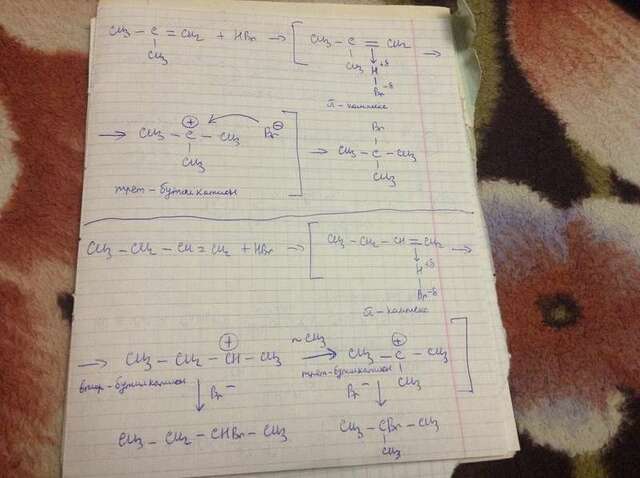 CH3 – C = CH2 + HBr → [ CH3 – C = CH2 →
CH3
CH3
H +δ
Br -δ
π – комплекс
→ CH3 – C⊕ – CH3 Br⊖ ]
CH3
трет – бутилкатион
Br
→ CH3 – C – CH3
CH3
CH3 – CH2 – CH = CH2 + HBr → [ CH3 – CH2 – CH = CH2 →
H +δ
Br -δ
π – комплекс
→ CH3 – CH2 – CH⊕ – CH3 ~CH3 → CH3 – C⊕ – CH3 ]
CH3
втор – бутилкатион
трет – бутилкатион
↓ Br – Br – ↓
CH3 – CH2 – CHBr – CH3 CH3 – CBr – CH3
CH3